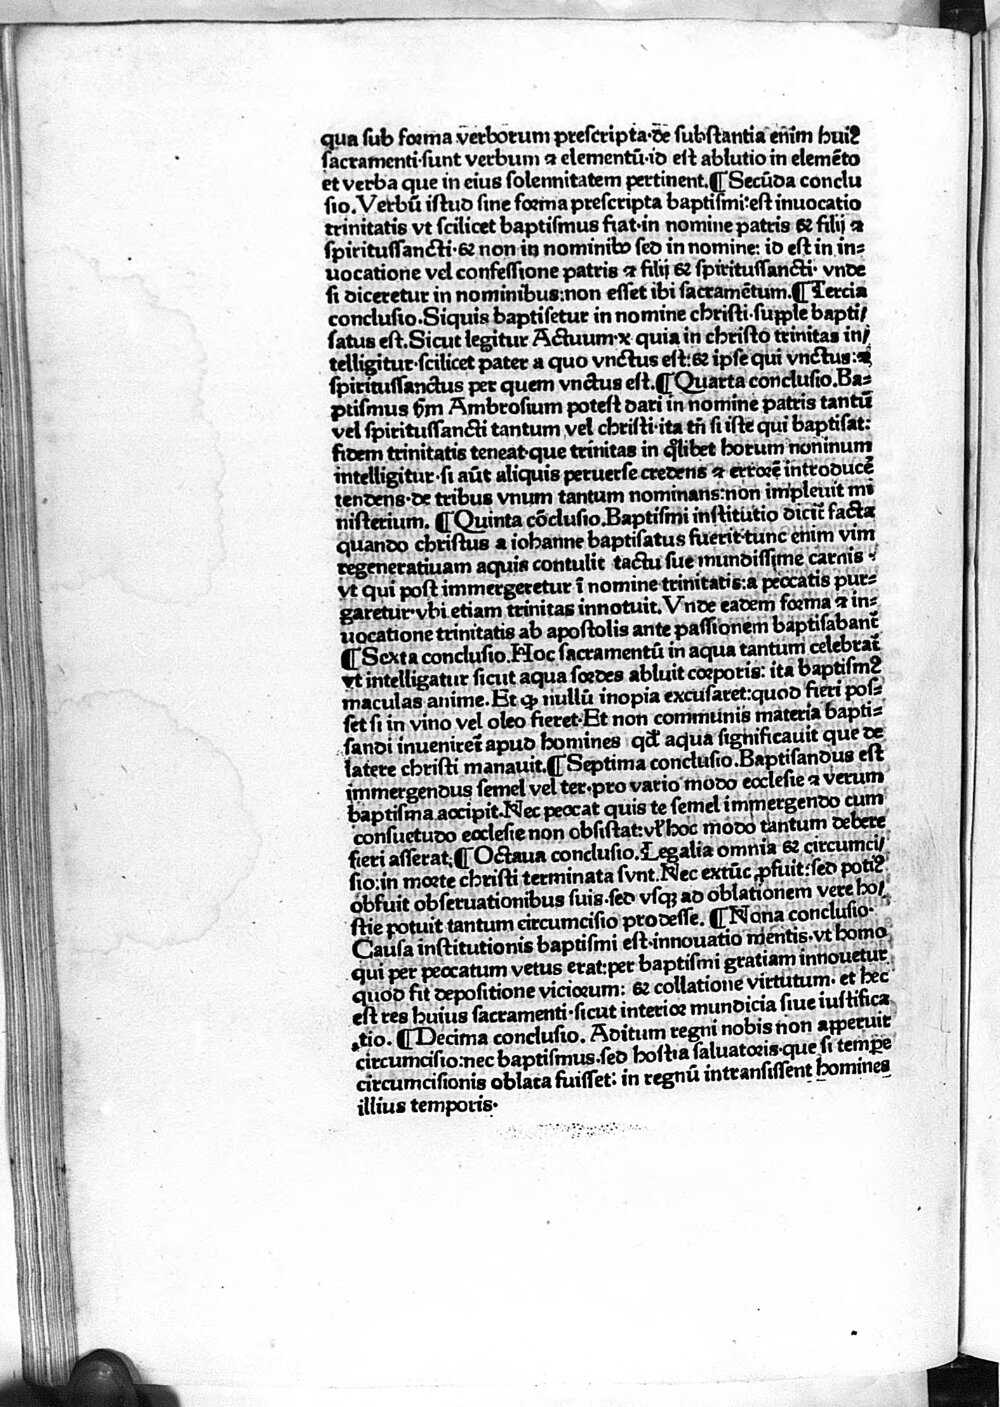 qua sub forma verborum prescripta·de substantia enim huiꝰ
sacramenti·sunt verbum ⁊ elementū·id est ablutio in elemēto
et verba que in eius solennitatem pertinent.¶Secūda conclu
sio.Verbū istud sine forma prescripta baptismi:est inuocatio
trinitatis vt scilicet baptismus fiat·in nomine patris & filij ⁊
spiritussancti·& non in nominibꝰ sed in nomine: id est in in⸗
uocatione vel confessione patris ⁊ filij & spiritussancti· vnde
si diceretur in nominibus:non esset ibi sacramētum.¶Tercia
conclusio.Siquis baptisetur in nomine christi·supple bapti/
satus est.Sicut legitur Actuum·x quia in christo trinitas in/
telligitur·scilicet pater a quo vnctus est:& ipse qui vnctus:⁊
spiritussanctus per quem vnctus est.¶Quarta conclusio.Ba⸗
ptismus ẜm Ambrosium potest dari in nomine patris tantū
vel spiritussancti tantum vel christi·ita tñ si iste qui baptisat:
fidem trinitatis teneat·que trinitas in q̄libet horum noninum
intelligitur·si aūt aliquis peruerse credens ⁊ errorē introducē
tendens·de tribus vnum tantum nominans:non impleuit mi
nisterium. ¶Quinta cōclusio.Baptismi institutio dicit̄ facta
quando christus a iohanne baptisatus fuerit·tunc enim vim
regeneratiuam aquis contulit tactu sue mundissime carnis ·
vt qui post immergeretur ī nomine trinitatis:a peccatis pur⸗
garetur·vbi etiam trinitas innotuit.Vnde eadem forma ⁊ in⸗
uocatione trinitatis ab apostolis ante passionem baptisabant̄
¶Sexta conclusio.Hoc sacramentū in aqua tantum celebrat̄
vt intelligatur sicut aqua sordes abluit corporis: ita baptismꝰ
maculas anime.Et ꝙ nullū inopia excusaret:quod fieri pos⸗
set si in vino vel oleo fieret·Et non communis materia bapti⸗
sandi inueniret̄ apud homines qd̄ aqua significauit que de
latere christi manauit.¶Septima conclusio.Baptisandus est
immergendus semel vel ter·pro vario modo ecclesie ⁊ verum
baptisma accipit.Nec peccat quis te semel immergendo cum
consuetudo ecclesie non obsistat:vl̓ hoc modo tantum debere
fieri asserat.¶Octaua conclusio.Legalia omnia & circumci/
sio:in morte christi terminata sunt.Nec extūc ꝓfuit:sed potiꝰ
obfuit obseruationibus suis·sed vsqꝫ ad oblationem vere ho/
stie potuit tantum circumcisio prodesse. ¶Nona conclusio·
Causa institutionis baptismi est·innouatio mentis·vt homo
qui per peccatum vetus erat:per baptismi gratiam innouetur
quod fit depositione viciorum: & collatione virtutum· et hec
est res huius sacramenti·sicut interior mundicia siue iustifica
tio. ¶Decima conclusio. Aditum regni nobis non apperuit
circumcisio:nec baptismus·sed hostia saluatoris·que si tempe
circumcisionis oblata fuisset: in regnū intransissent homines
illius temporis·